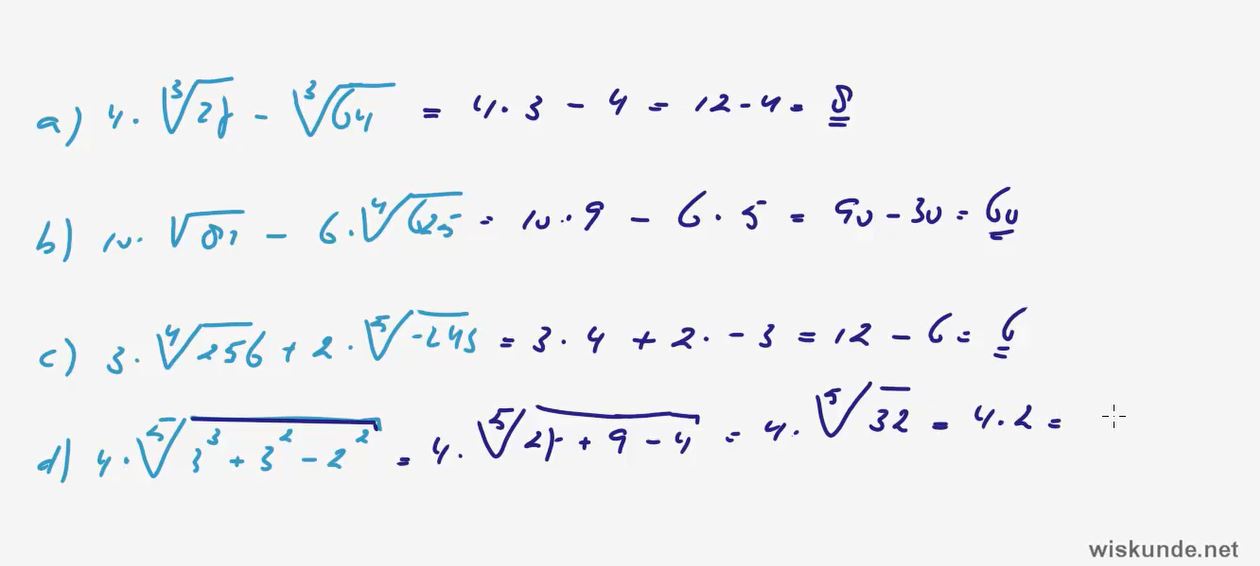 a) 4 · ∛27 − ∛64 = 4 · 3 − 4 = 12 − 4 = 8
b) 10 · √81 − 6 · ∜625 = 10 · 9 − 6 · 5 = 90 − 30 = 60
c) 3 · ∜256 + 2 · ⁵√-243 = 3 · 4 + 2 · − 3 = 12 − 6 = 6
d) 4 · ⁵√(3³ + 3² − 2²) = 4 · ⁵√(27 + 9 − 4) = 4 · ⁵√32 = 4 · 2 =
wiskunde.net